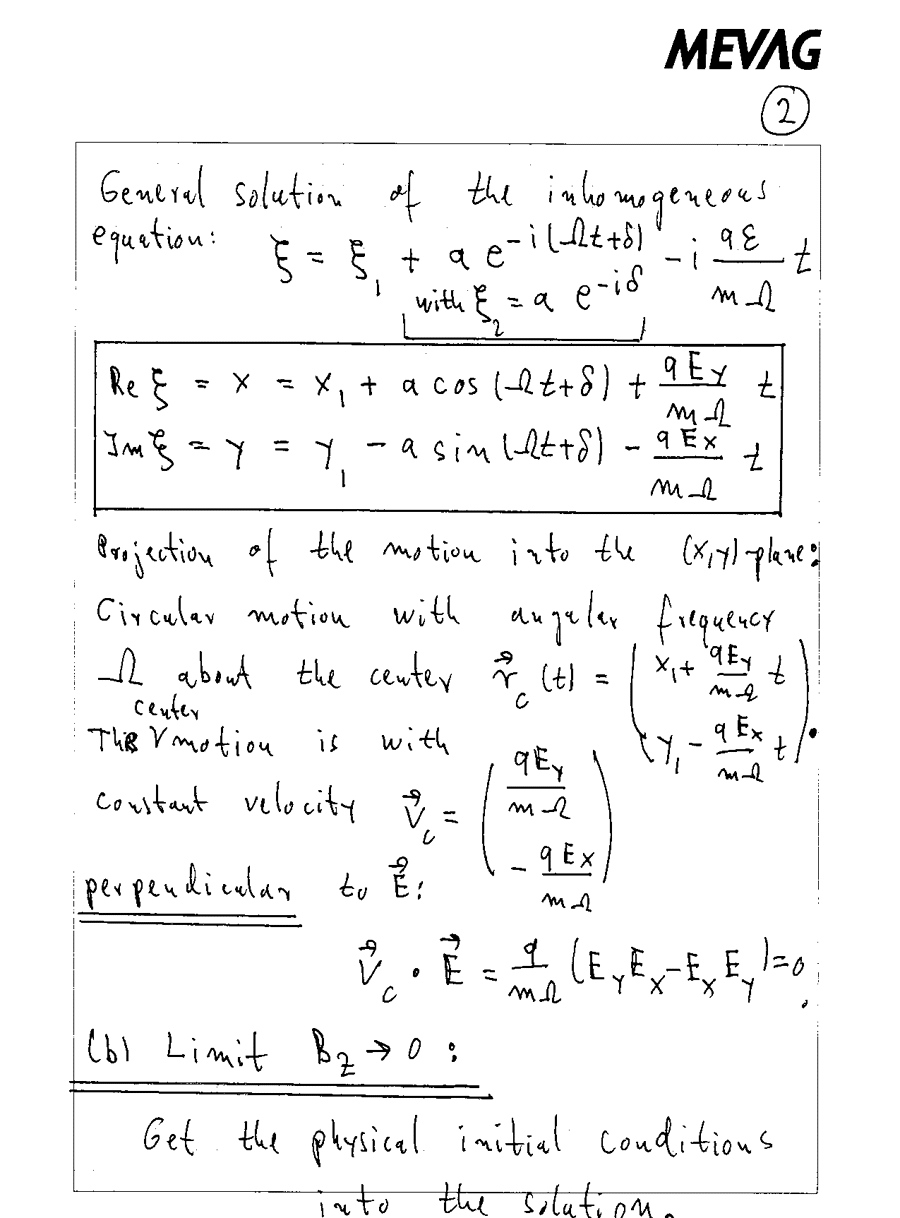 MEVAG
2
General solution of the inhomogeneous
equation: ξ = ξ₁ + a e^{-i(Ωt+δ)} - i \frac{qℰ}{mΩ} t
with ξ₂ = a e^{-iδ}
Re ξ = x = x₁ + a cos (Ωt+δ) + \frac{qE_y}{mΩ} t
Im ξ = y = y₁ - a sin (Ωt+δ) - \frac{qE_x}{mΩ} t
Projection of the motion into the (x,y)-plane:
Circular motion with angular frequency
Ω about the center \vec{r}_c (t) = \begin{pmatrix} x₁ + \frac{qE_y}{mΩ} t \\ y₁ - \frac{qE_x}{mΩ} t \end{pmatrix}.
The center motion is with
constant velocity \vec{v}_c = \begin{pmatrix} \frac{qE_y}{mΩ} \\ -\frac{qE_x}{mΩ} \end{pmatrix}
perpendicular to \vec{E}:
\vec{v}_c · \vec{E} = \frac{q}{mΩ} (E_y E_x - E_x E_y) = 0.
(b) Limit B_z → 0 :
Get the physical initial conditions
into the solution.